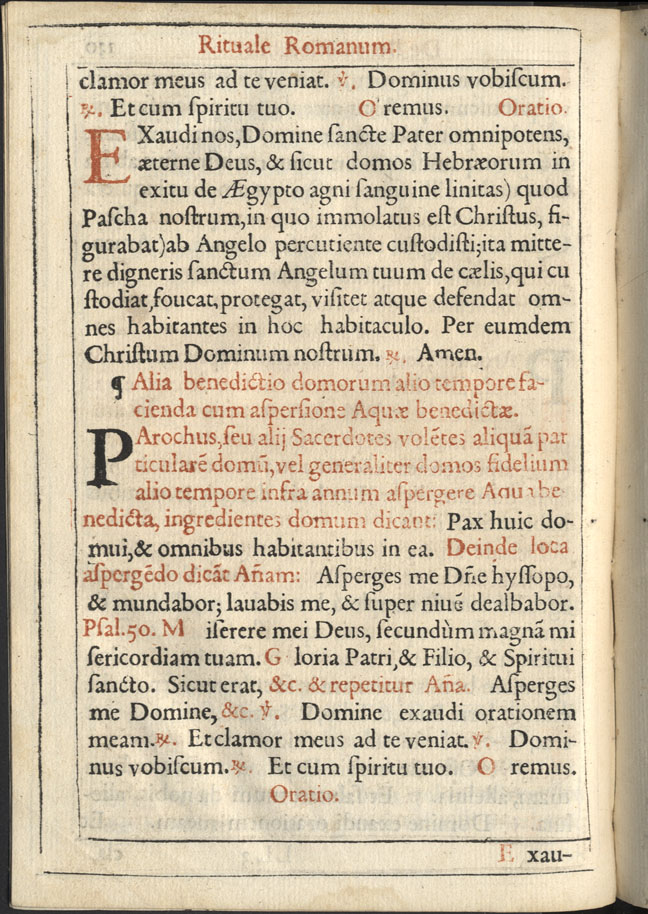 Rituale Romanum.
clamor meus ad te veniat. ℣. Dominus vobiſcum.
℟. Et cum ſpiritu tuo. O remus. Oratio.
EXaudi nos, Domine ſancte Pater omnipotens,
æterne Deus, & ſicut domos Hebræorum in
exitu de Ægypto agni ſanguine linitas) quod
Paſcha noſtrum, in quo immolatus eſt Chriſtus, fi-
gurabat)ab Angelo percutiente cuſtodiſti;ita mitte-
re digneris ſanctum Angelum tuum de cælis, qui cu
ſtodiat, foucat, protegat, viſitet atque defendat om-
nes habitantes in hoc habitaculo. Per eumdem
Chriſtum Dominum noſtrum. ℟. Amen.
¶ Alia benedictio domorum alio tempore fa-
cienda cum aſperſione Aquæ benedictæ.
PArochus, ſeu alij Sacerdotes volẽtes aliquã par
ticularẽ domũ, vel generaliter domos fidelium
alio tempore infra annum aſpergere Aqua be
nedicta, ingredientes domum dicant: Pax huic do-
mui, & omnibus habitantibus in ea. Deinde loca
aſpergẽdo dicãt Añam: Aſperges me Dñe hyſſopo,
& mundabor; lauabis me, & ſuper niuẽ dealbabor.
Pſal. 50. M iſerere mei Deus, ſecundùm magnã mi
ſericordiam tuam. G loria Patri, & Filio, & Spiritui
ſancto. Sicut erat, &c. & repetitur Aña. Aſperges
me Domine, &c. ℣. Domine exaudi orationem
meam. ℟. Et clamor meus ad te veniat. ℣. Domi-
nus vobiſcum. ℟. Et cum ſpiritu tuo. O remus.
Oratio.
E xau-